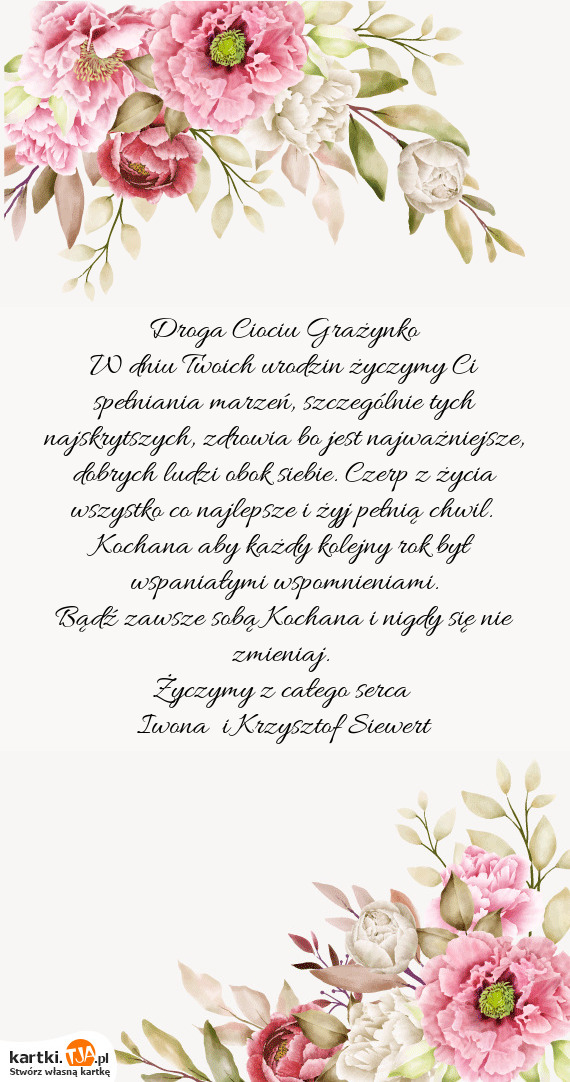 Droga Ciociu Grażynko
W dniu Twoich urodzin życzymy Ci
spełniania marzeń, szczególnie tych
najskrytszych, zdrowia bo jest najważniejsze,
dobrych ludzi obok siebie. Czerp z życia
wszystko co najlepsze i żyj pełnią chwil.
Kochana aby każdy kolejny rok był
wspaniałymi wspomnieniami.
Bądź zawsze sobą Kochana i nigdy się nie
zmieniaj.
Życzymy z całego serca
Iwona i Krzysztof Siewert
kartki.TJA.pl
Stwórz własną kartkę